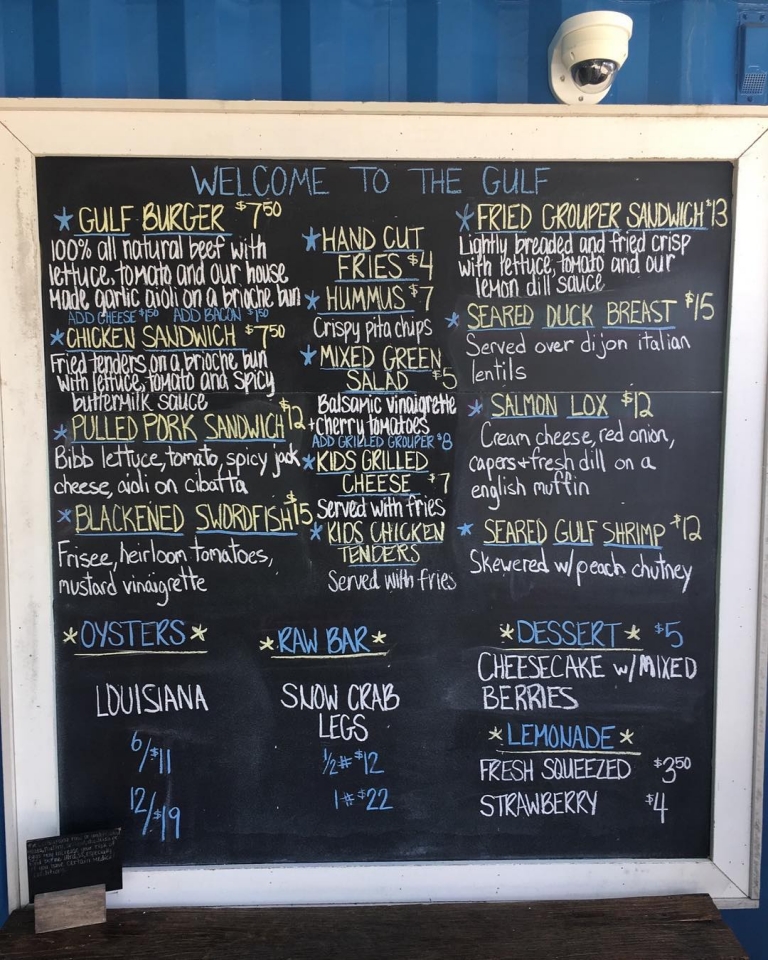 WELCOME TO THE GULF
* GULF BURGER $7.50
100% all natural beef with
lettuce, tomato and our house
made garlic aioli on a brioche bun
ADD CHEESE $1.50 ADD BACON $1.50
* CHICKEN SANDWICH $7.50
Fried tenders on a brioche bun
with lettuce, tomato and spicy
buttermilk sauce
* PULLED PORK SANDWICH $12
Bibb lettuce, tomato, spicy jack
cheese, aioli on cibatta
* BLACKENED SWORDFISH $15
Frisee, heirloom tomatoes,
mustard vinaigrette
* HAND CUT
FRIES $4
* HUMMUS $7
Crispy pita chips
* MIXED GREEN
SALAD $5
Balsamic vinaigrette
+ cherry tomatoes
ADD GRILLED GROUPER $8
* KIDS GRILLED
CHEESE $7
Served with fries
* KIDS CHICKEN
TENDERS
Served with fries
* FRIED GROUPER SANDWICH $13
Lightly breaded and fried crisp
with lettuce, tomato and our
lemon dill sauce
* SEARED DUCK BREAST $15
Served over dijon italian
lentils
* SALMON LOX $12
Cream cheese, red onion,
capers + fresh dill on a
english muffin
* SEARED GULF SHRIMP $12
Skewered w/ peach chutney
* OYSTERS *
LOUISIANA
6/$11
12/$19
* RAW BAR *
SNOW CRAB
LEGS
1/2# $12
1# $22
* DESSERT * $5
CHEESECAKE w/ MIXED
BERRIES
* LEMONADE *
FRESH SQUEEZED $3.50
STRAWBERRY $4